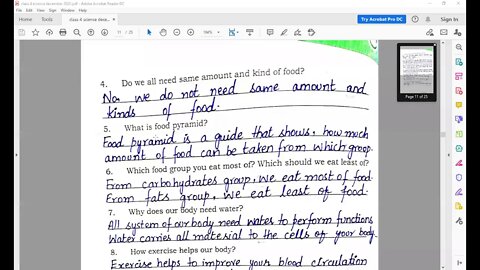 class 4 science december 2020.pdf - Adobe Acrobat Reader DC
Home Tools
Try Acrobat Pro DC
Sign In
11 / 25
Page 11 of 25
4. Do we all need same amount and kind of food?
No, we do not need same amount and
kinds of food.
5. What is food pyramid?
Food pyramid is a guide that shows, how much
amount of food can be taken from which group.
6. Which food group you eat most of? Which should we eat least of?
From carbohydrates group, we eat most of food.
From fats group, we eat least of food.
7. Why does our body need water?
All system of our body need water to perform functions
Water carries all material to the cells of your body.
8. How exercise helps our body?
Exercise helps to improve your blood circulation